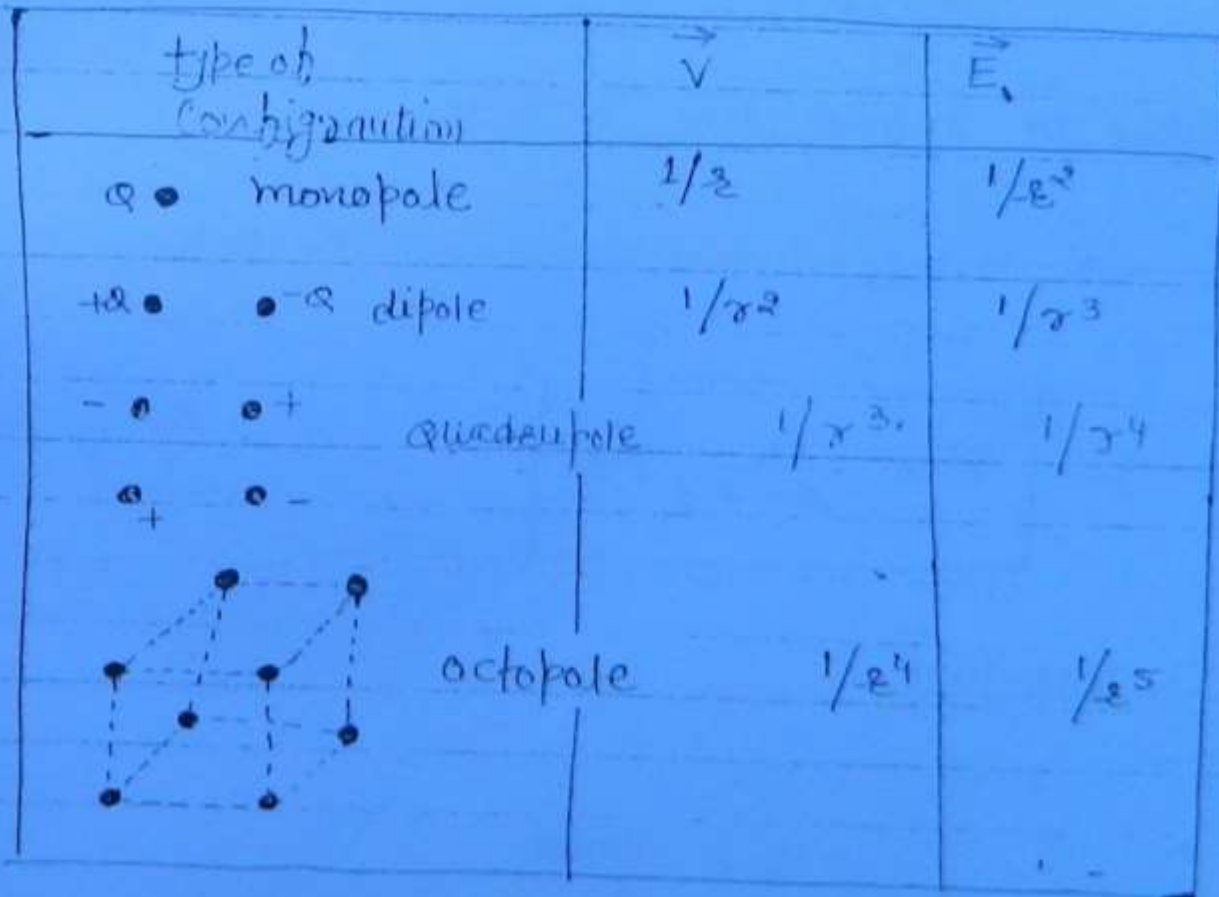 type of V⃗ E⃗
Configuration
Q monopole 1/r 1/r²
+Q -Q dipole 1/r² 1/r³
- +
Quadrupole 1/r³ 1/r⁴
+ -
octopole 1/r⁴ 1/r⁵